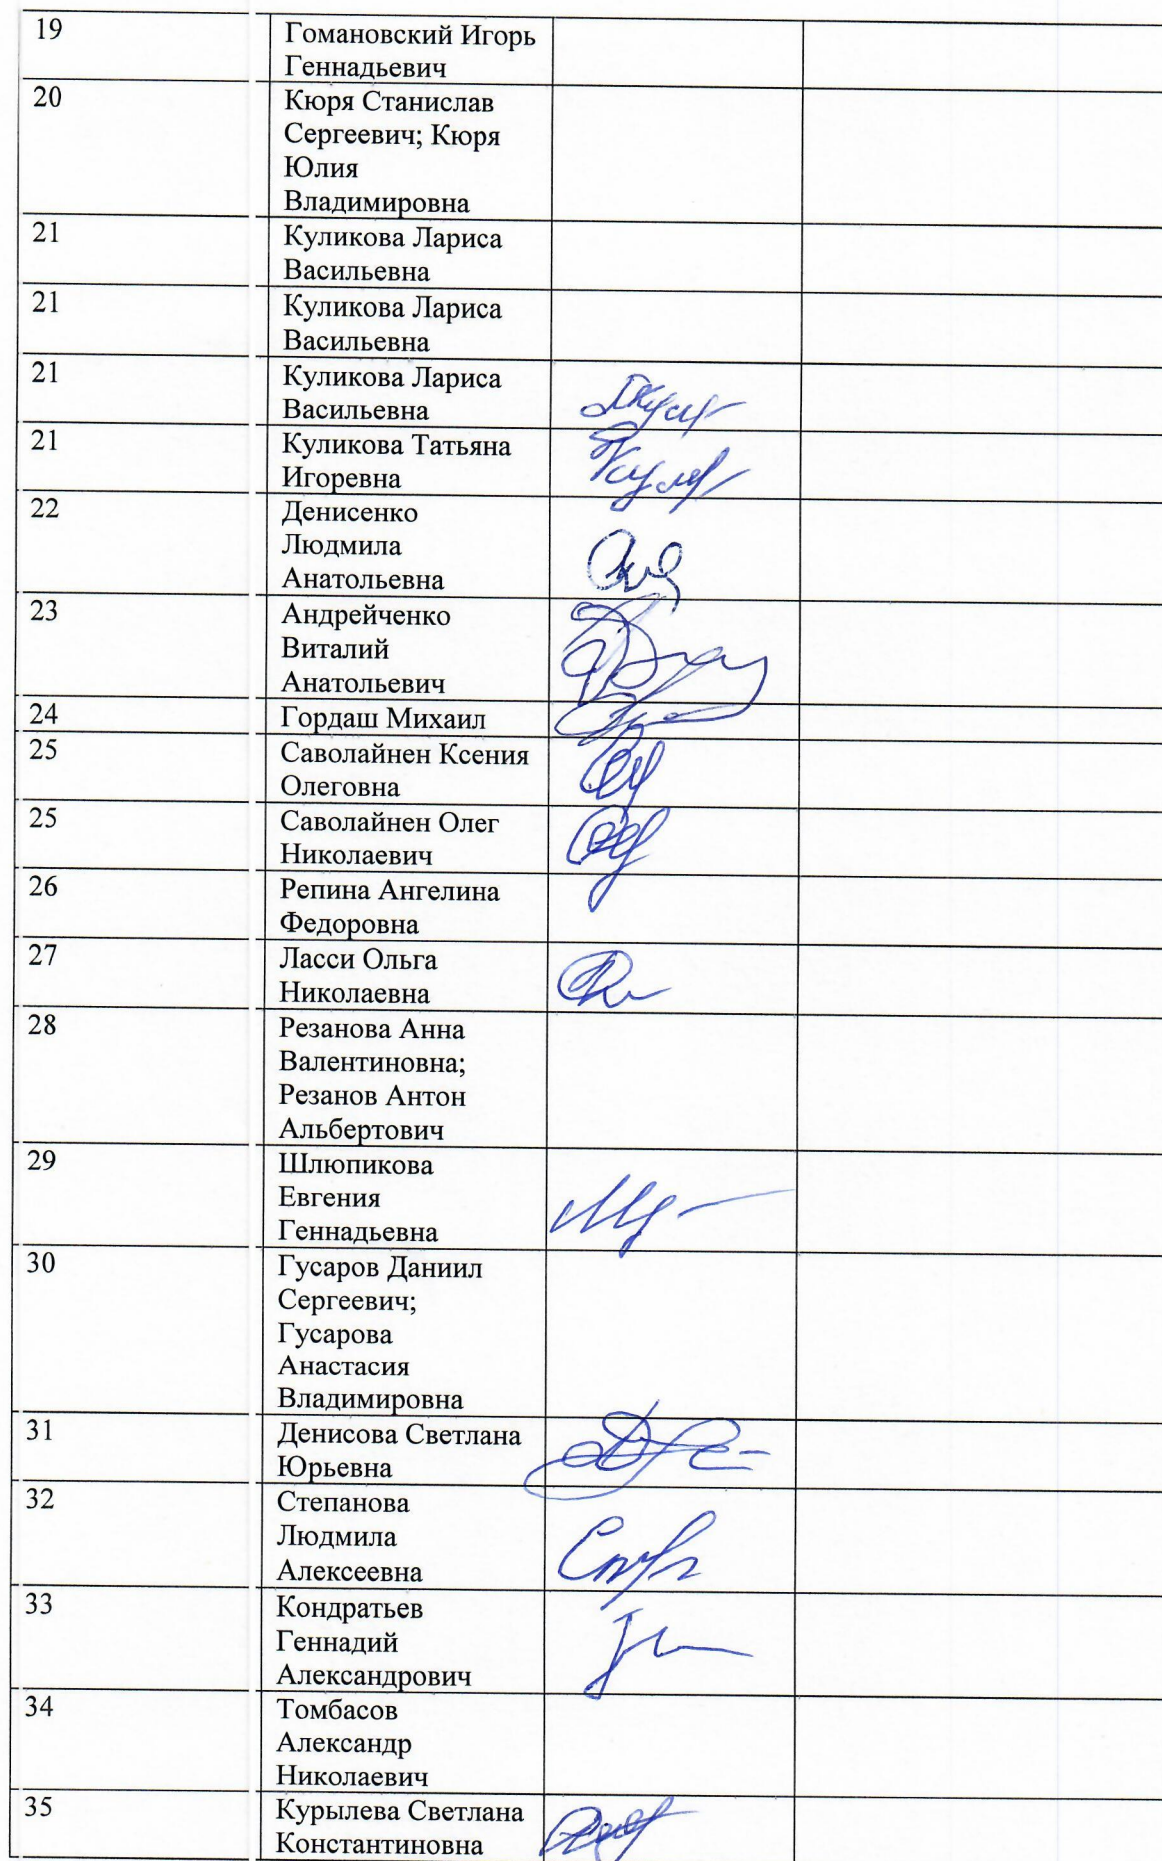 19 Гомановский Игорь
Геннадьевич
20 Кюря Станислав
Сергеевич; Кюря
Юлия
Владимировна
21 Куликова Лариса
Васильевна
21 Куликова Лариса
Васильевна
21 Куликова Лариса
Васильевна
21 Куликова Татьяна
Игоревна
22 Денисенко
Людмила
Анатольевна
23 Андрейченко
Виталий
Анатольевич
24 Гордаш Михаил
25 Саволайнен Ксения
Олеговна
25 Саволайнен Олег
Николаевич
26 Репина Ангелина
Федоровна
27 Ласси Ольга
Николаевна
28 Резанова Анна
Валентиновна;
Резанов Антон
Альбертович
29 Шлюпикова
Евгения
Геннадьевна
30 Гусаров Даниил
Сергеевич;
Гусарова
Анастасия
Владимировна
31 Денисова Светлана
Юрьевна
32 Степанова
Людмила
Алексеевна
33 Кондратьев
Геннадий
Александрович
34 Томбасов
Александр
Николаевич
35 Курылева Светлана
Константиновна